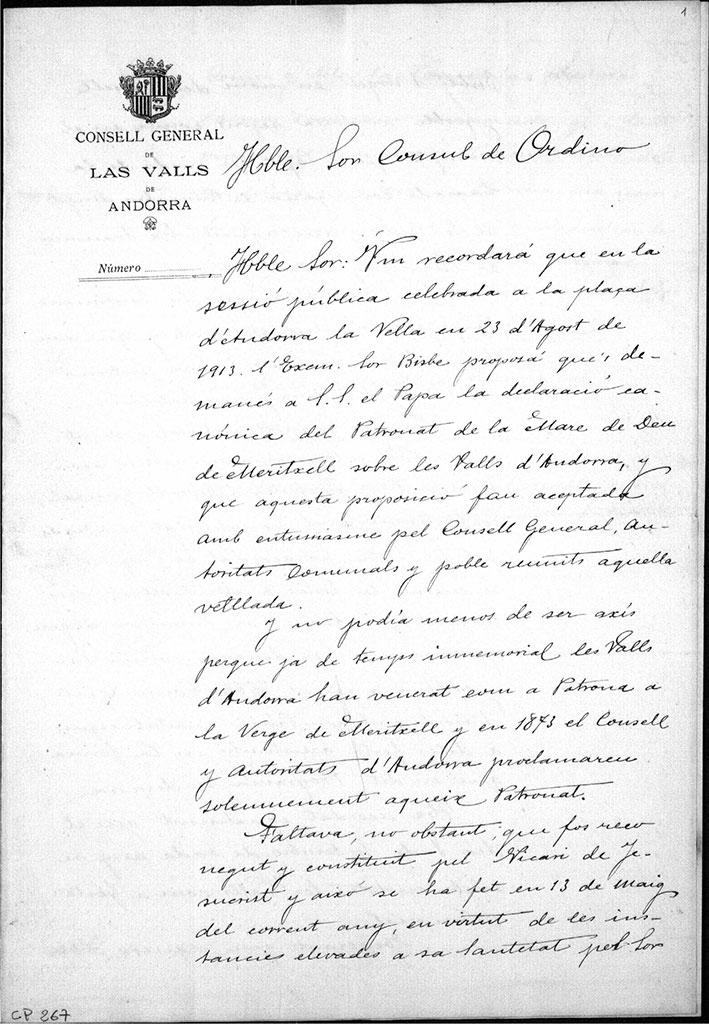 1
CONSELL GENERAL
DE
LAS VALLS
DE
ANDORRA
Número
Hble. Sor Consul de Ordino
Hble Sor: Vm recordará que en la
sessió pública celebrada a la plaça
d'Andorra la Vella en 23 d'Agost de
1913. l'Exem. Sor Bisbe proposá que's de-
manés a S.S. el Papa la declaració ca-
nónica del Patronat de la Mare de Deu
de Meritxell sobre les Valls d'Andorra, y
que aquesta proposició fou aceptada
amb entusiasme pel Consell General, au-
toritats Comunals y poble reunits aquella
vetllada.
Y no podía menos de ser axís
perque ja de temps inmemorial les Valls
d'Andorra han venerat com a Patrona a
la Verge de Meritxell y en 1873 el Consell
y Autoritats d'Andorra proclamaren
solemnement aqueix Patronat.
Faltava, no obstant, que fos reco
negut y constituit pel Vicari de Je-
sucrist y aixó se ha fet en 13 de Maig
del corrent any, en virtut de les ins-
tancies elevades a sa Santetat pel Sor
CP 267